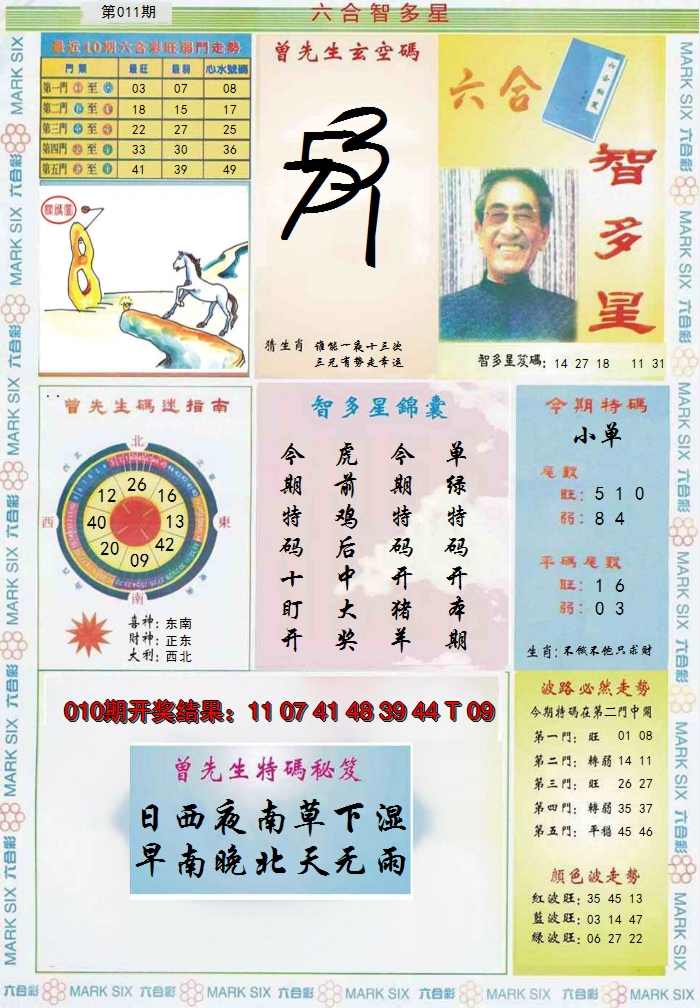 第011期
六合智多星
最近10期六合彩旺弱門走勢
門類 最旺 最弱 心水號碼
第一門 至 03 07 08
第二門 至 18 15 17
第三門 至 22 27 25
第四門 至 33 30 36
第五門 至 41 39 49
曾先生玄空碼
猜生肖 谁能一夜十三次
三元有势走幸运
六合
智多星
智多星笈碼: 14 27 18 11 31
曾先生碼迷指南
北
西 東
南
26
12 16
40 13
20 42
09
喜神: 东南
財神: 正东
大利: 西北
智多星錦囊
单绿特码开本期
今期特码开猪羊
虎前鸡后中大奖
今期特码十盯开
今期特碼
小单
尾數
旺: 5 1 0
弱: 8 4
平碼尾數
旺: 1 6
弱: 0 3
生肖: 不做不他只求财
010期开奖结果: 11 07 41 48 39 44 T 09
曾先生特碼秘笈
日西夜南草下湿
早南晚北天无雨
波路必然走勢
今期特碼在第二門中開
第一門: 旺 01 08
第二門: 轉弱 14 11
第三門: 旺 26 27
第四門: 轉弱 35 37
第五門: 平穩 45 46
顏色波走勢
紅波旺: 35 45 13
藍波旺: 03 14 47
綠波旺: 06 27 22
MARK SIX 六合彩